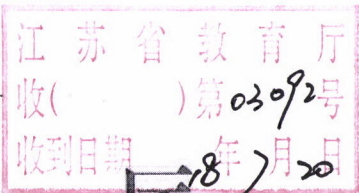 江苏省教育厅
收( )第03092号
收到日期 18年7月20日